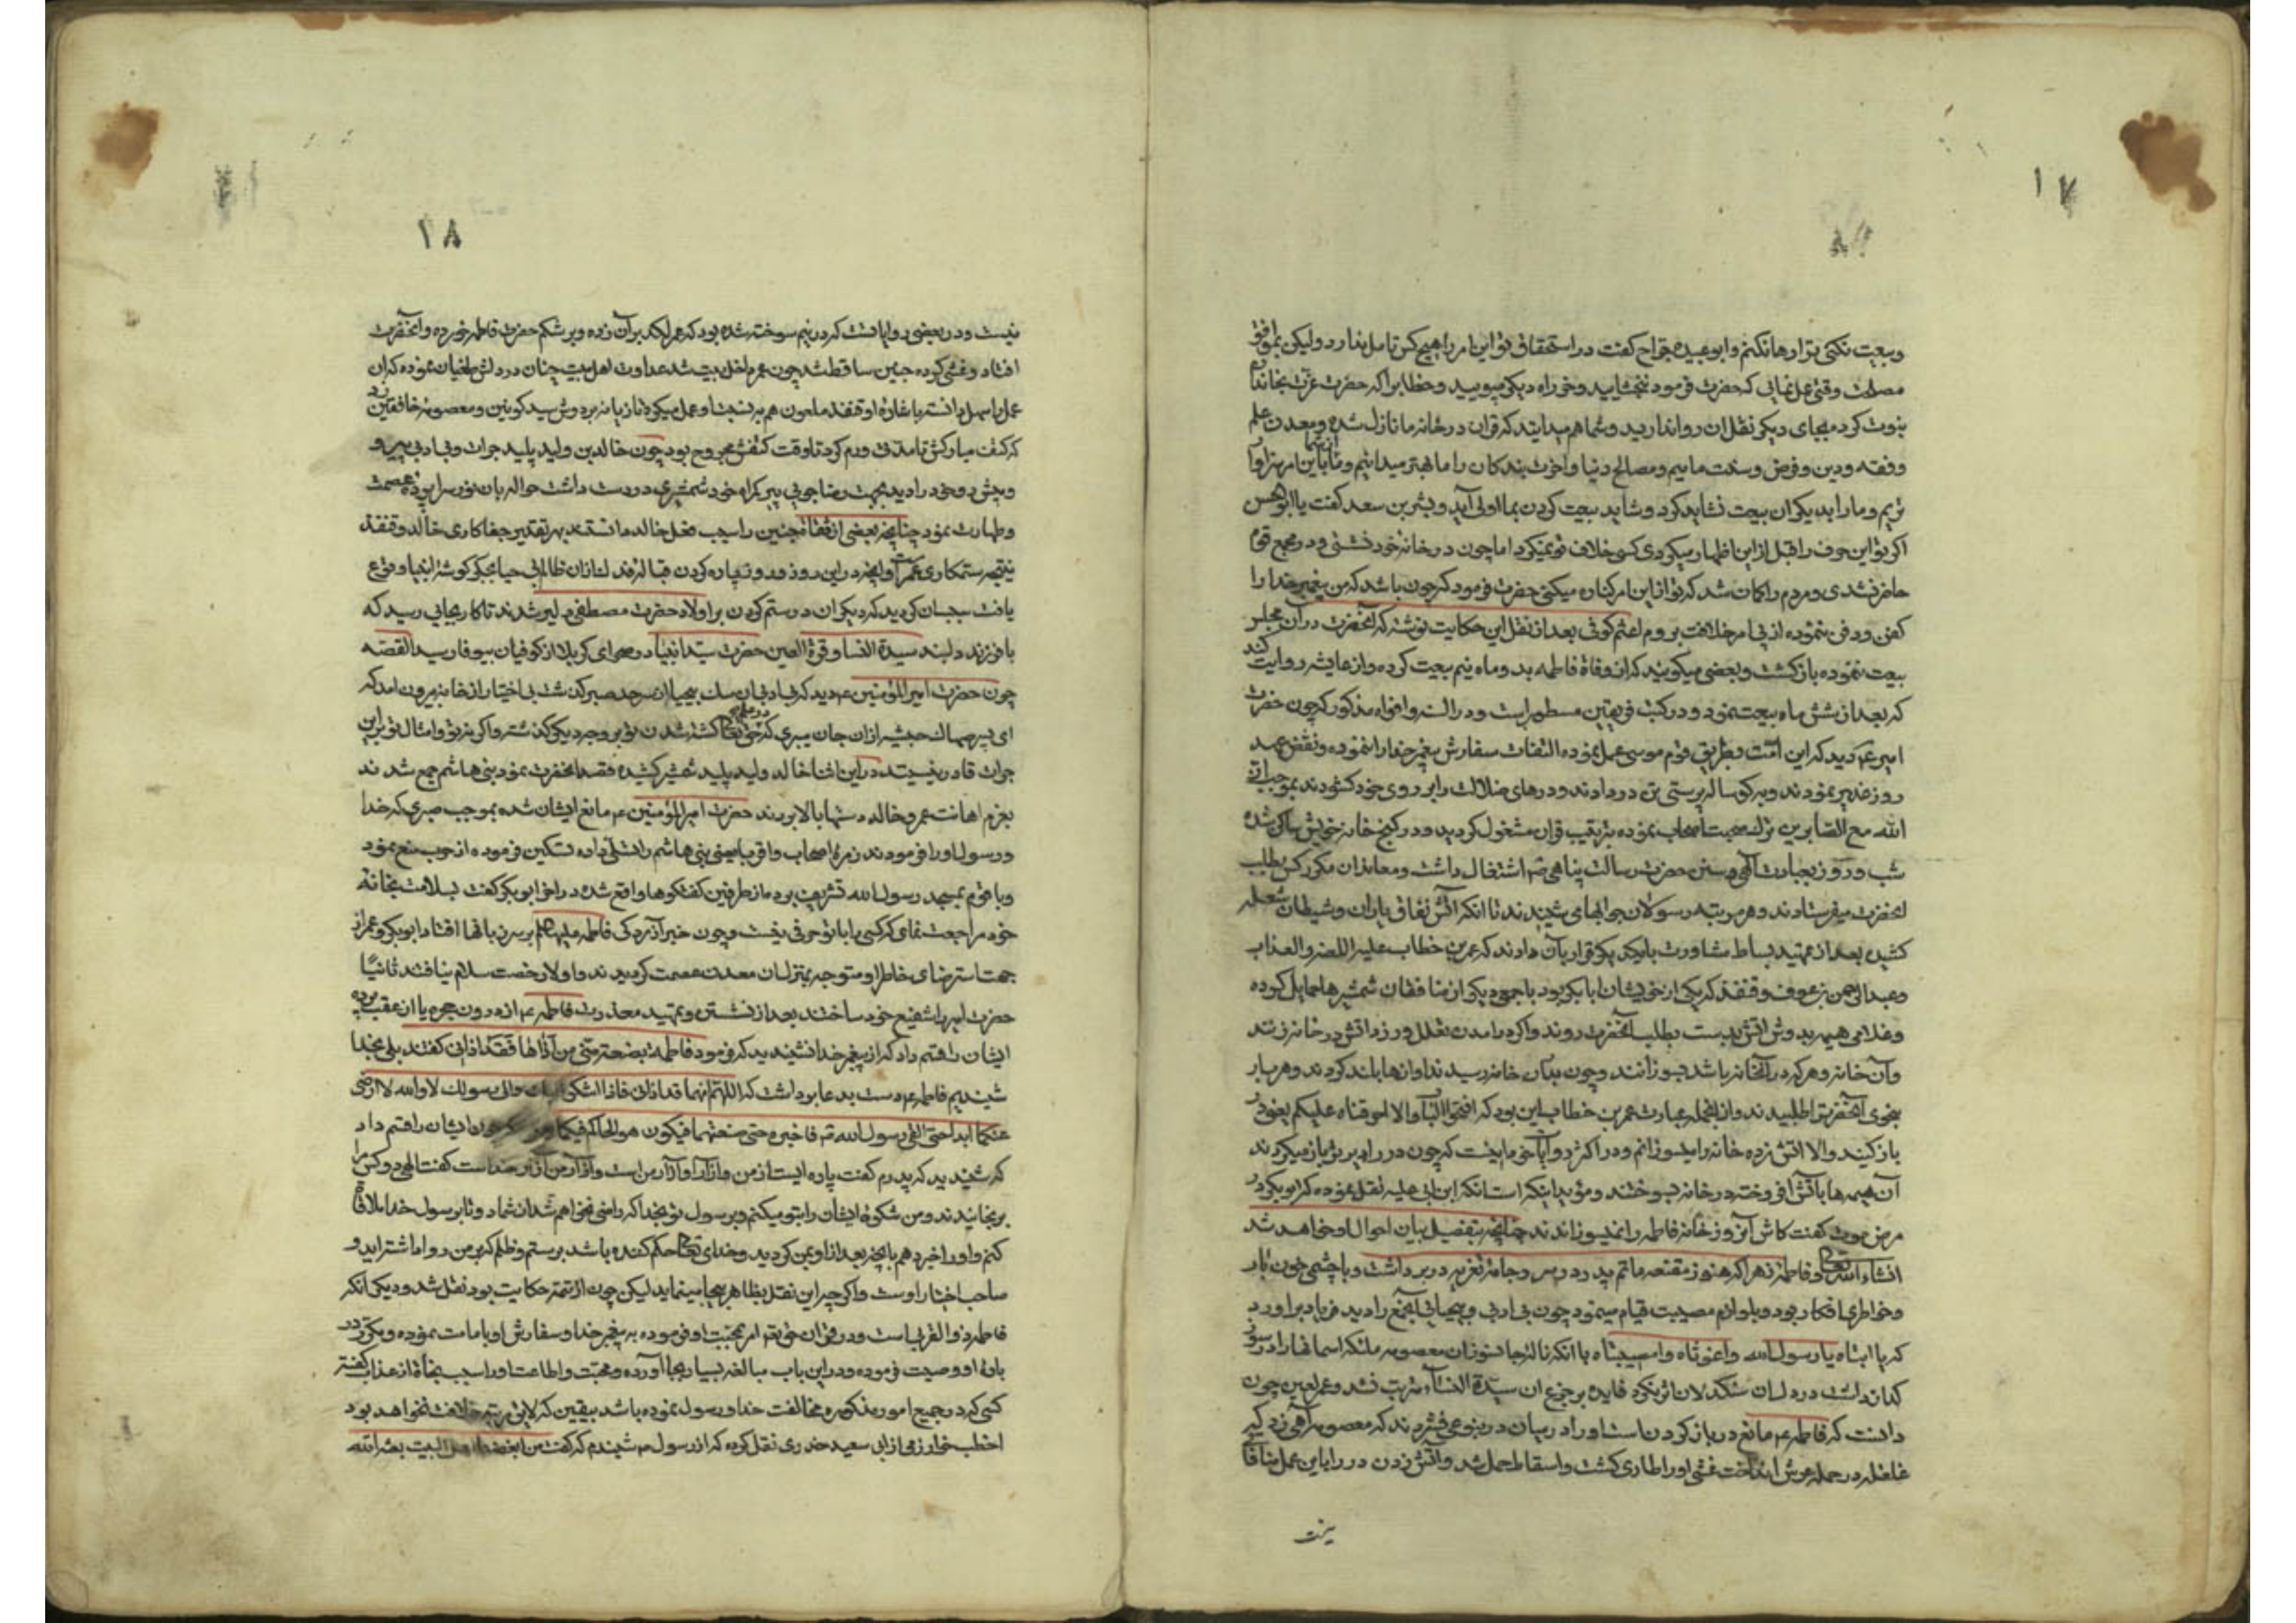 ۱۷
وبیعت نکنی ترا رها نکنم وابوعبیده جراح کفت در استحقاق تو این امر را هیچ کس تامل ندارد ولیکن بموافق
مصلحت وقتی عمل نمائی که حضرت فرمود ببخشایید وخود راه دیکر مپویید وخطا برا که حضرت عزت بخاندان
نبوت کرده بجای دیکر نقل ان روا ندارید وشما هم میدانید که قران در خانه ما نازل شده ومعدن علم
وفقه ودین وفرض وسنت ماییم ومصالح دنیا واخرت بندکان را ما بهتر میدانیم وما باین امر از شما سزاوار
تریم وما را بدیکران بیعت نشاید کرد وشاید بیعت کردن بما اولی آید وبشر بن سعد کفت یا ابوالحسن
اکر تو این حرف را قبل از این اظهار میکردی کسی خلاف تو نمیکرد اما چون در خانه خود نشستی ودر مجمع قوم
حاضر نشدی ومردم را کمان شد که تو از این امر کناره میکنی حضرت فرمود که چون باشد که من پیغمبر خدا را
کفن ودفن ننموده از پی امر خلافت بروم اعثم کوفی بعد از نقل این حکایت نوشته که آنحضرت در آن مجلس
بیعت ننموده بازکشت وبعضی میکویند که از وفاة فاطمه بدو ماه نیم بیعت کرده واز عایشه روایت کنند
که بعد از شش ماه بیعت نمود ودر کتب فریقین مسطور است ودر السنه وافواه مذکور که چون حضرت
امیر ع دید که این امت بطریق قوم موسی عمل نموده التفات سفارش پیغمبر خدا را ننموده ونقض عهد
روز غدیر نمودند وبه کوساله پرستی تن در دادند ودرهای ضلالت را بر روی خود کشودند بموجب ان
الله مع الصابرین ترک صحبت اصحاب نموده بترتیب قران مشغول کردید ودر کنج خانه خویش ساکن شده
شب وروز بعبادت الهی وسنن حضرت رسالت پناهی ص اشتغال داشت ومعاندان مکرر کس بطلب
انحضرت میفرستادند وهر مرتبه رسولان جوابهای می شنیدند تا انکه آتش نفاق یاران وشیطان شعله
کشیده بعد از تمهید بساط مشاورت بایکدیکر قرار بآن دادند که عمر بن خطاب علیه اللعنه والعذاب
وعبدالرحمن بن عوف وقنفذ که یکی از خویشان ابابکر بود با جمعی دیکر از منافقان شمشیرها حمایل کرده
وغلامی هیمه بدوش آتش بدست بطلب آنحضرت روند واکر در آمدن تعلل ورزد آتش در خانه زنند
وآن خانه وهر که در آنخانه باشد بسوزانند وچون بدان خانه رسیدند اوازها بلند کردند وهر بار
بنحوی آنحضرت را طلبیدند وازانجمله عبارت عمر بن خطاب این بود که افتحوا الباب والا احرقناه علیکم یعنی در
باز کنید والا آتش زده خانه را میسوزانم ودر اکثر روایات خود ما اینست که چون در را دیر تر باز میکردند
آن هیمه ها بآتش افروخته در خانه سوختند ومؤید اینکه است انکه ابن ابی ... نقل نموده که ابوبکر در
مرض موت کفت کاش آنروز خانه فاطمه را نمیسوزاندند چنانچه بتفصیل بیان احوال او خواهد شد
انشاء الله تعالی وفاطمه زهرا که هنوز مقنعه ماتم پدر در سر وجامه تعزیه در بر داشت وبا چشمی خون بار
وخواطری افکار بود وبلوازم مصیبت قیام مینمود چون بی ادبی وبیحیائی آنجمع را دید فریاد براورد
که یا ابتاه یا رسول الله واغوثاه وامصیبتاه با انکه ناله جانسوزان معصومه ملائکه اسمانها را در سوز
کداز داشت در دل ان سنکدلان اثر نکرد فایده بر جزع ان سیدة النساء مترتب نشد وعمر لعین چون
دانست که فاطمه ع مانع در باز کردن است او را در پس ان در بنوعی فشردند که معصومه آهی زد که
غلغله در حمله عرش انداخت غشی او را طاری کشت واسقاط حمل شد وآتش زدن در را باین عمل منافات
نیست
۱۸
نیست ودر بعضی روایاتست که در نیم سوخته شده بود که عمر لکد بر آن زده وبر شکم حضرت فاطمه خورده وآنحضرت
افتاد وغشی کرده جنین ساقط شد چون عمر داخل بیت شد عداوت اهل بیت چنان در دلش طغیان نموده که ان
عمل را سهل دانسته باشاره او قنفذ ملعون هم ... تازیانه بر دوش سید کونین ومعصومه خافقین زد
که کتف مبارکش تا مدتی ورم کرد تا وقت کتفش مجروح بود چون خالد بن ولید پلید جرات وبی ادبی پیر و
وپیش رو خود را دید بجهت رضا جوئی پیر کمراه خود شمشیری در دست داشت حواله بان نور سراپرده عصمت
وطهارت نمود چنانچه بعضی از فضلا جنین را سبب فعل خالد دانستند بهر تقدیر جفا کاری خالد وقنفذ
نتیجه ستمکاری عمر است وانچه در این روز ... پاره کردن قباله فدک ازان ظالم بی حیا بجکر کوشه انبیا وقوع
یافت سبب ان کردید که دیکران در ستم کردن بر اولاد حضرت مصطفی دلیر شدند تا کار بجائی رسید که
با فرزند دلبند سیدة النسا وقرة العین حضرت سید انبیا در صحرای کربلا از کوفیان بیوفا رسید القصه
چون حضرت امیرالمؤمنین ع دید که بی ادبی ان سک بیحیا از سرحد صبر کذشت بی اختیار از خانه بیرون امد که
ای پسر صهاک حبشیه ازان جان میبری که حق تعالی در علم کشته شدن تو بر وجه دیکر کذشته واکر نه تو وامثال تو بر این
جرات قادر نیستند در این اثنا خالد ولید پلید شمشیر کشیده قصد انحضرت نمود بنی هاشم جمع شدند
بعزم اهانت عمر وخالد دستها بالا بردند حضرت امیرالمؤمنین ع مانع ایشان شده بموجب صبری که خدا
ورسول او را فرمودند زمره اصحاب واقربا یعنی بنی هاشم را تسلی داده تسکین فرموده از حرب منع نمود
وبا قوم بمسجد رسول الله تشریف برد ما از طرفین کفتکوها واقع شده در اخر ابوبکر کفت بسلامت بخانه
خود مراجعت نمای که کسی را با تو حرفی نیست وچون خبر آزردکی فاطمه علیها السلام بر سر زبانها افتاد ابوبکر وعمر از
جهت استرضای خاطر او متوجه بمنزل ان معدن عصمت کردیدند واولا رخصت سلام نیافتند ثانیا
حضرت امیر را شفیع خود ساختند بعد از نشستن وتمهید معذرت فاطمه ع از درون حجره یا از عقب پرده
ایشان را قسم داد که از پیغمبر خدا نشنیدید که فرمود فاطمة بضعة منی من آذاها فقد آذانی کفتند بلی بخدا
شنیدیم فاطمه ع دست بدعا برداشت که اللهم انهما قد آذیانی فانا اشکوهما الیک والی رسولک لا والله لا ارضی
عنکما ابدا حتی القی رسول الله ص فاخبره حتی صنعتهما فیکون هو الحاکم فیکما ... چون ایشان را قسم داد
که شنیدید که پدرم کفت پاره ایست از من وازار او آزار من است وآزار من آزار خداست کفت الهی دو کس مرا
برنجانیدند ومن شکوه ایشان را بتو میکنم وبرسول تو بخدا که راضی نخواهم شد از شما دو تا بر رسول خدا ملاقات
کنم واو را خبر دهم بانچه بعد از او بمن کردید وخدای تعالی حکم کننده باشد بر ستم وظلم که بر من روا داشته اید و
صاحب اختیار اوست واکرچه این نقل بظاهر بیجا مینماید لیکن چون از تتمه حکایت بود نقل شد ودیکر انکه
فاطمه ذوالقربی است ودر قران حق تعالی امر بمحبت او فرموده به پیغمبر خدا وسفارش او بامامت نموده ومکرر در
باره او وصیت فرموده ودر این باب مبالغه بسیار بجا آورده ومحبت واطاعت او را سبب نجاة از عذاب کفته
کسی که در جمیع امور مذکوره مخالفت خدا ورسول نموده باشد بیقین که لایق مرتبه خلافت نخواهد بود
اخطب خوارزمی از ابی سعید خدری نقل کرده که از رسول ص شنیدم که کفت من ابغضنا اهل البیت بعثه الله